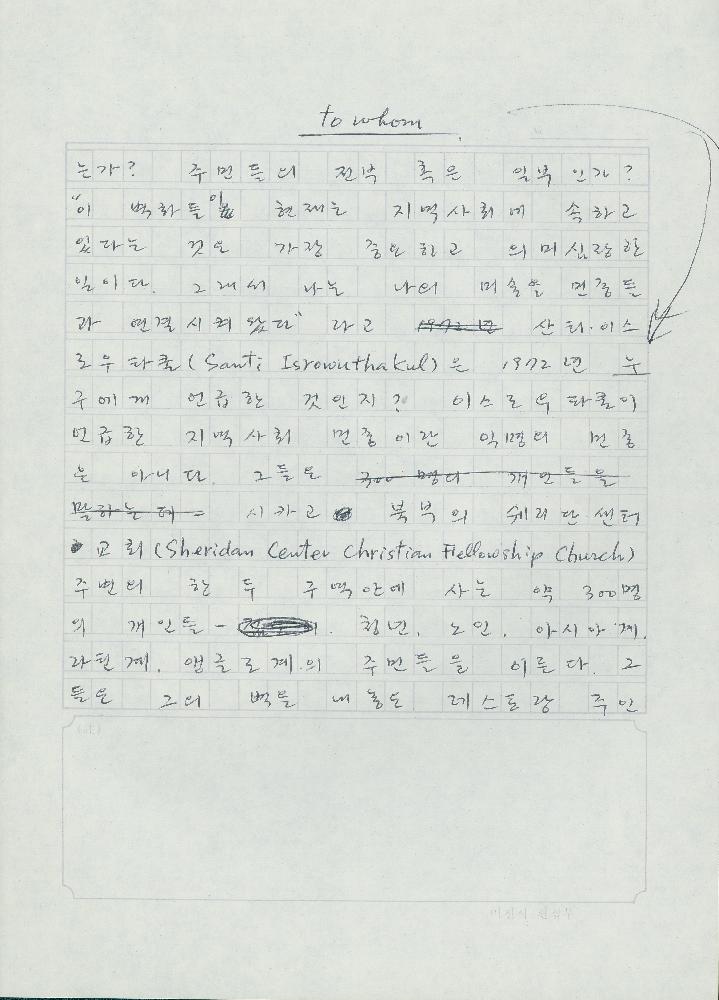 to whom
는가? 주민들의 전부 혹은 일부인가?
"이 벽화들이 현재는 지역사회에 속하고
있다는 것은 가장 중요하고 의미심장한
일이다. 그래서 나는 나의 미술을 민중들
과 연결시켜 왔다" 라고 1972년 산티·이스
로우타쿨(Santi Isrowuthakul)은 1972년 누
구에게 언급한 것인지? 이스로우타쿨이
언급한 지역사회 민중이란 익명의 민중
은 아니다. 그들은 300명의 개인들을
말하는데 시카고 북부의 쉐리단센터
교회(Sheridan Center Christian Fellowship Church)
주변의 한 두 구역안에 사는 약 300명
의 개인들 - 청년, 노인, 아시아계,
라틴계, 앵글로계의 주민들을 이른다. 그
들은 그의 벽들 레스토랑 주인